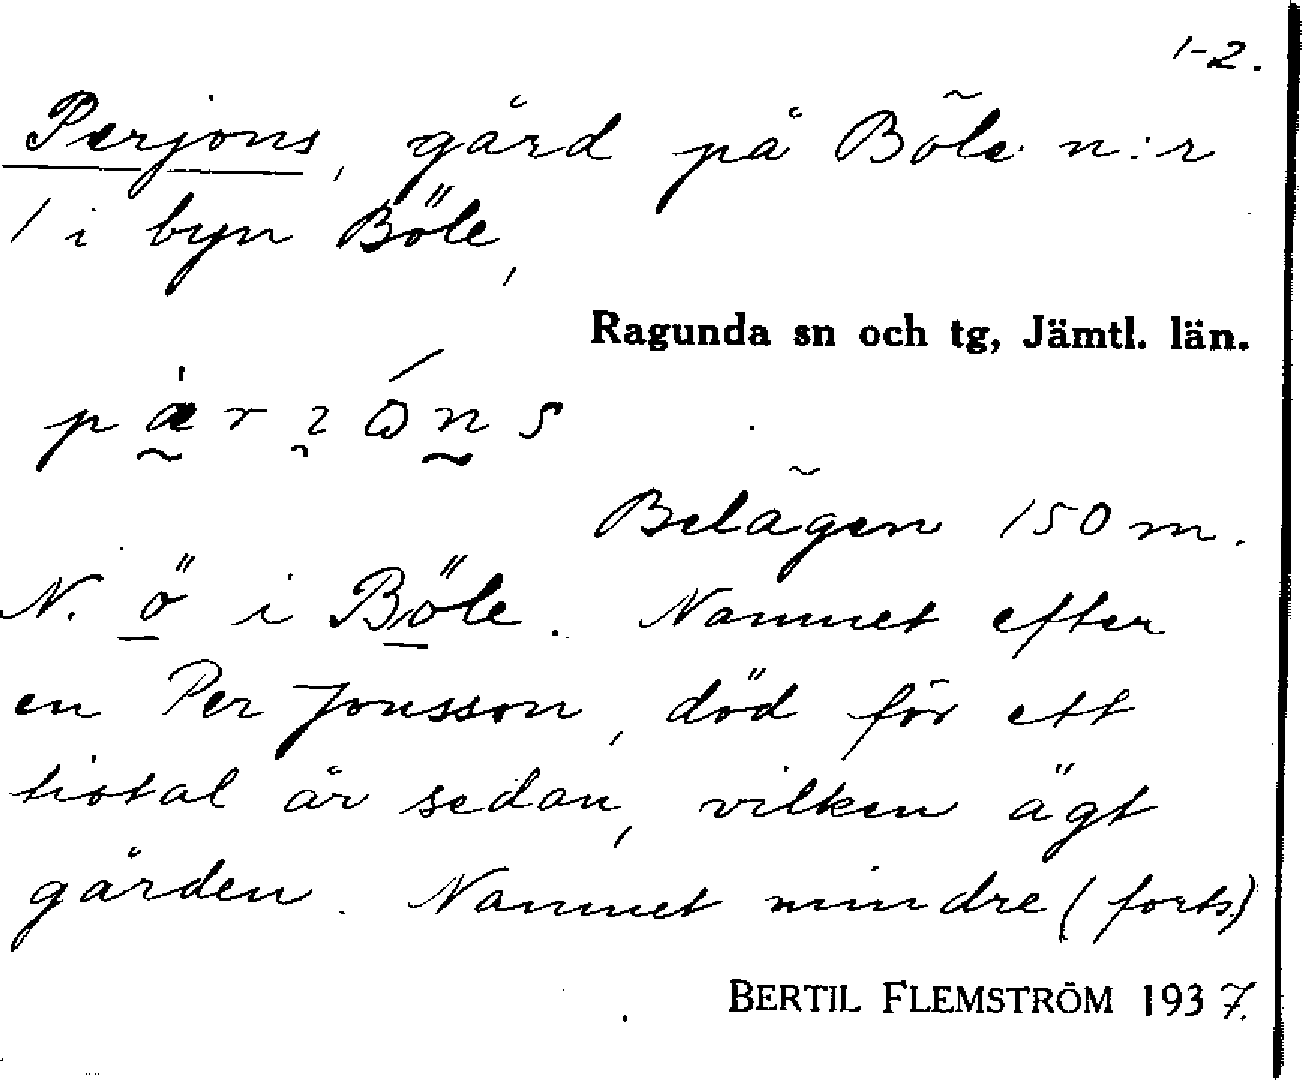 1-2.
Perjons, gård på Böle n:r
1 i byn Böle,
Ragunda sn och tg, Jämtl. län.
Belägen 150 m.
N. ö i Böle. Namnet efter
en Per Jonsson, död för ett
tiotal år sedan, vilken ägt
gården. Namnet mindre (forts.)
BERTIL FLEMSTRÖM 1937.